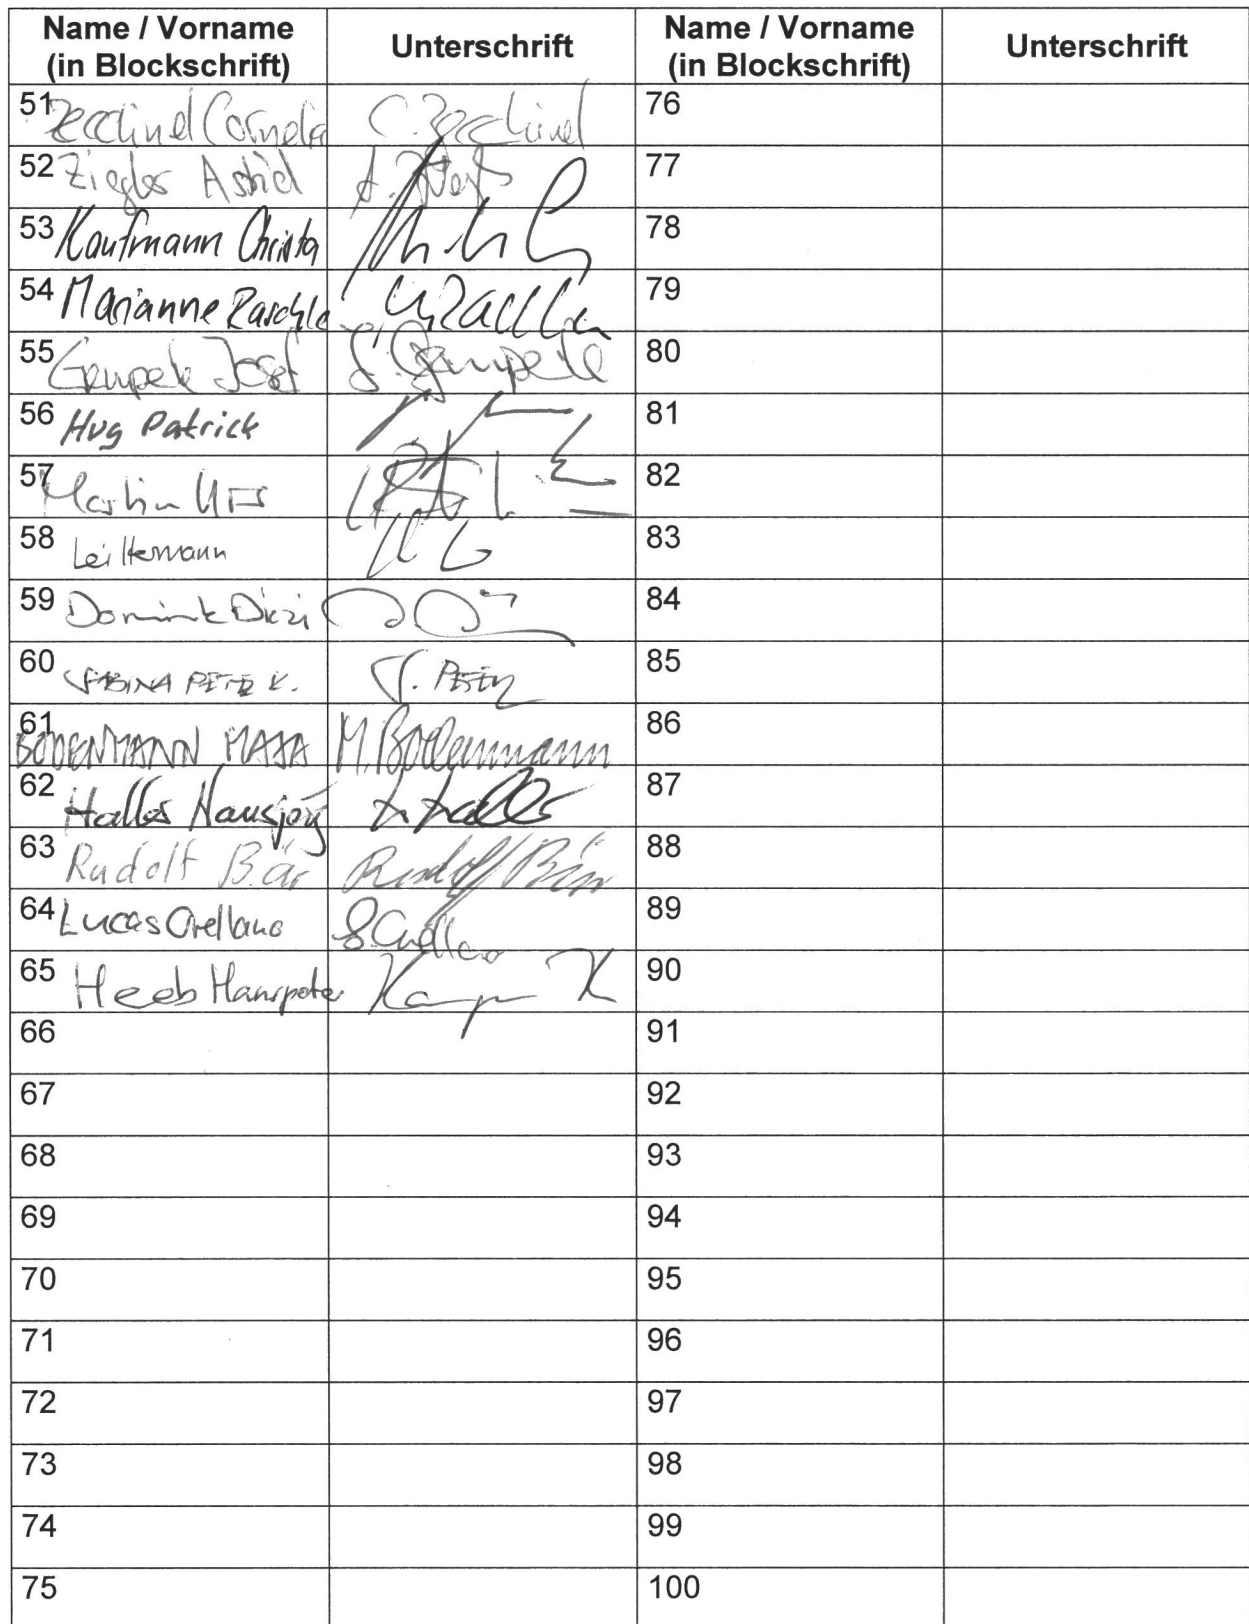 Name / Vorname (in Blockschrift) Unterschrift Name / Vorname (in Blockschrift) Unterschrift
51 Zecchinel Cornelia C. Zecchinel 76
52 Ziegler Astrid A. 77
53 Kaufmann Christa 78
54 Marianne Raschle 79
55 Gemperle Josef J. Gemperle 80
56 Hug Patrick 81
57 Martin Urs 82
58 Lei Hermann 83
59 Dominik Diezi 84
60 SABINA PETER K. S. PETER 85
61 BODENMANN MAJA M. Bodenmann 86
62 Haller Hansjörg H. Haller 87
63 Rudolf Bär Rudolf Bär 88
64 Lucas Orellano 89
65 Heeb Hanspeter 90
66 91
67 92
68 93
69 94
70 95
71 96
72 97
73 98
74 99
75 100